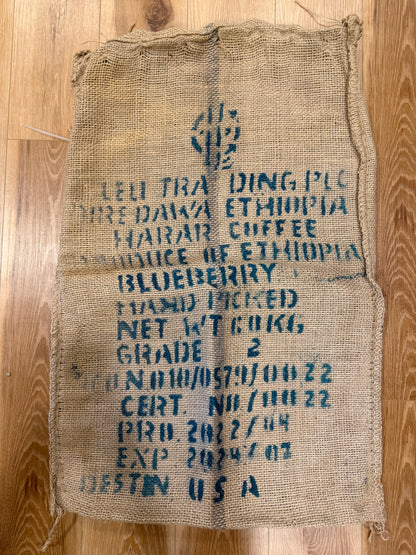 LELI TRADING PLC
DIRE DAWA ETHIOPIA
HARAR COFFEE
PRODUCE OF ETHIOPIA
BLUEBERRY
HAND PICKED
NET WT 60 KG
GRADE 2
CERT. NO/0022
PRD. 2022/04
EXP 2024/02
DESTIN USA